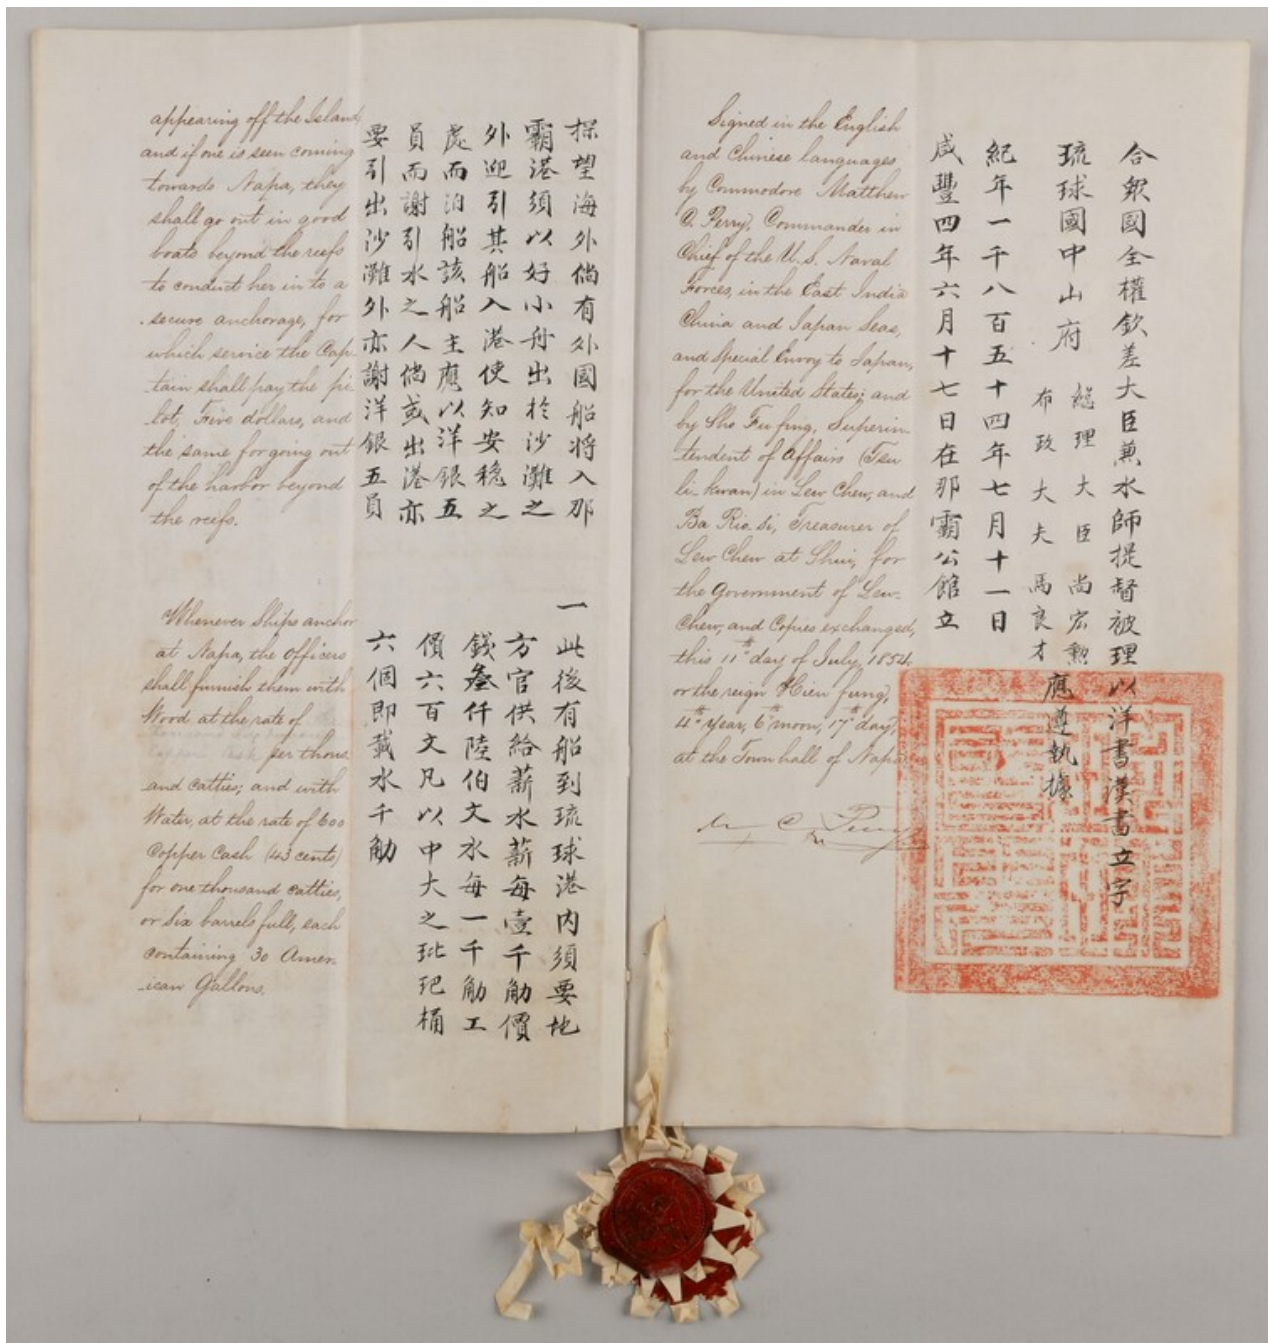 appearing off the Island,
and if one is seen coming
towards Napa, they
shall go out in good
boats beyond the reefs
to conduct her in to a
secure anchorage, for
which service the Cap-
tain shall pay the pi-
lot, Five dollars, and
the same for going out
of the harbor beyond
the reefs.
探望海外倘有外國船将入那
霸港須以好小舟出於沙灘之
外迎引其船入港使知安穩之
處而泊船該船主應以洋銀五
員而謝引水之人倘或出港亦
要引出沙灘外亦謝洋銀五員
Whenever Ships anchor
at Napa, the Officers
shall furnish them with
Wood at the rate of
per thous-
and catties; and with
Water, at the rate of 600
Copper Cash (43 cents)
for one thousand catties,
or Six barrels full, each
containing 30 Amer-
-ican Gallons.
一此後有船到琉球港内須要地
方官供給薪水薪每壹千觔價
錢叁仟陸伯文水每一千觔工
價六百文凡以中大之玭玘桶
六個即載水千觔
Signed in the English
and Chinese languages
by Commodore Matthew
C. Perry, Commander in
Chief of the U.S. Naval
Forces, in the East India
China and Japan Seas,
and Special Envoy to Japan,
for the United States; and
by Sho Fu fing, Superin-
tendent of Affairs (Tsu
li-kwan) in Lew Chew, and
Ba Rio-si, Treasurer of
Lew Chew at Shui, for
the Government of Lew-
Chew, and Copies exchanged,
this 11th day of July, 1854,
or the reign Hien fung,
4th Year, 6th moon, 17th day,
at the Town hall of Napa.
M C Perry
合衆國全權欽差大臣兼水師提督被理以洋書漢書立字
琉球國中山府
總理大臣尚宏勲
布政大夫馬良才
應遵執據
紀年一千八百五十四年七月十一日
咸豐四年六月十七日在那霸公館立